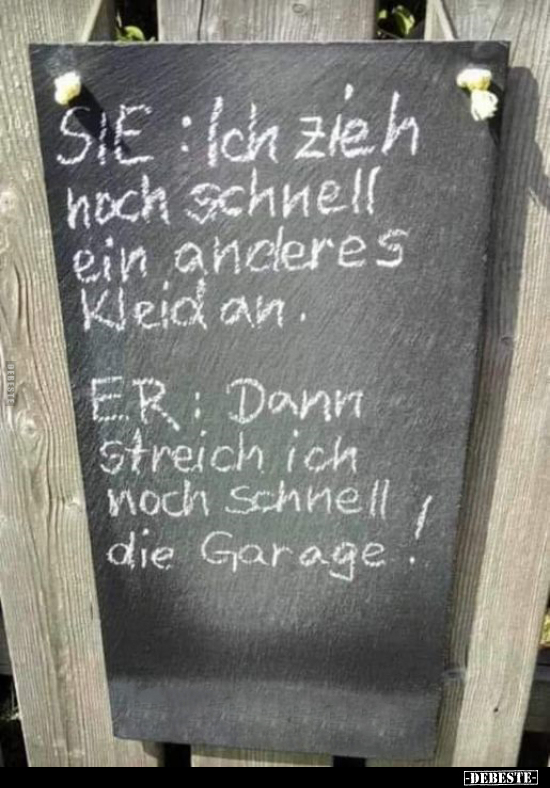 SIE : Ich zieh
noch schnell
ein anderes
Kleid an.
ER : Dann
streich ich
noch schnell
die Garage !
-DEBESTE-